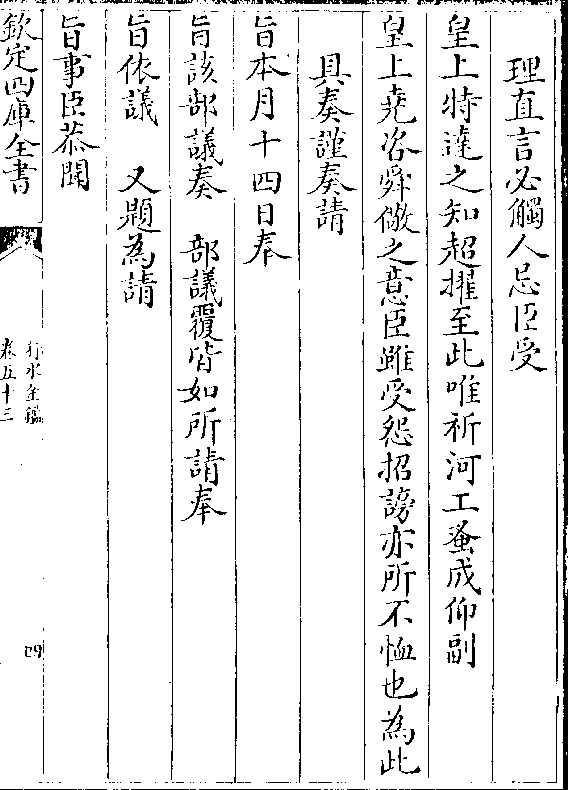 理直言必觸人忌臣受
皇上特達之知超擢至此唯祈河工蚤成仰副
皇上堯咨舜儆之意臣雖受怨招謗亦所不恤也為此
具奏謹奏請
旨本月十四日奉
旨該部議奏　部議覆皆如所請奉
旨依議　又題為請
旨事臣恭閱
欽定四庫全書
行水金鑑
卷五十三
四